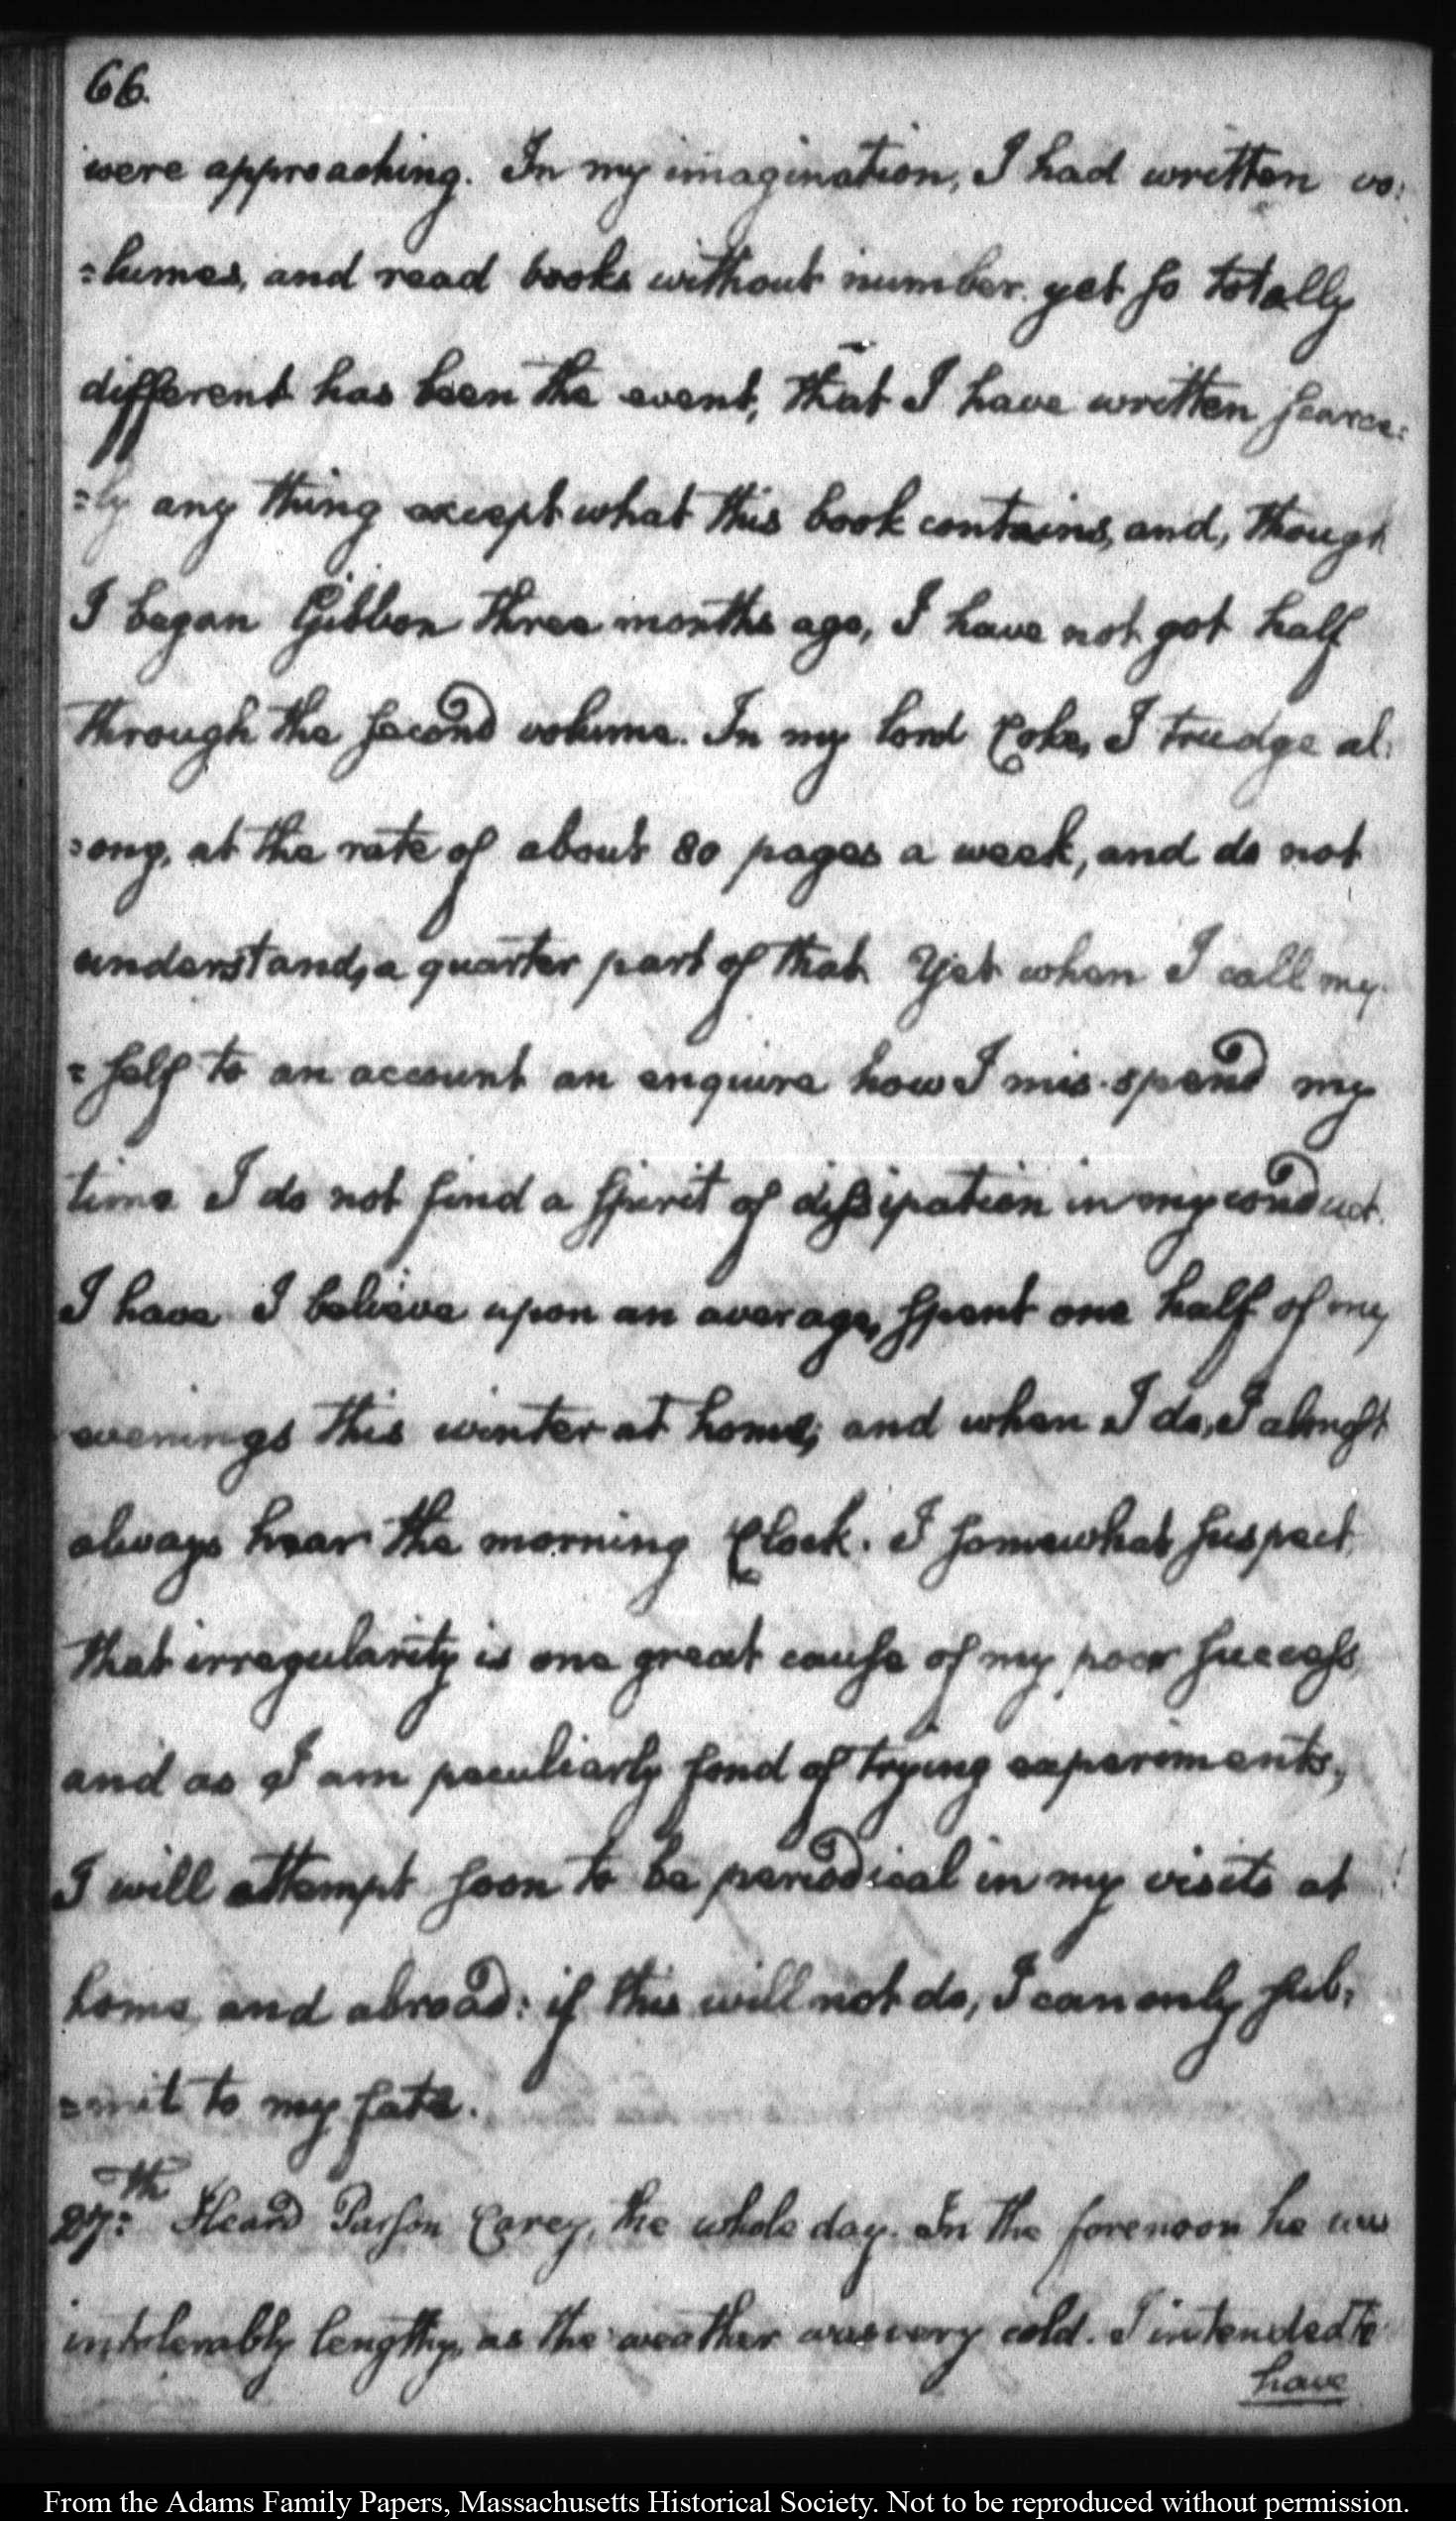 66.
were approaching. In my imagination, I had written vo:
=lumes, and read books without number. yet so totally
different has been the event, that I have written scarce:
=ly any thing except what this book contains, and, though
I began Gibbon three months ago, I have not got half
through the second volume. In my Lord Coke, I trudge al:
=ong, at the rate of about 80 pages a week, and do not
understand, a quarter part of that. Yet when I call my-
=self to an account an enquire how I mis-spend my
time I do not find a spirit of dissipation in my conduct.
I have I believe upon an average, spent one half of my
evenings this winter at home; and when I do, I almost
always hear the morning Clock. I somewhat suspect
that irregularity is one great cause of my poor success
and as I am peculiarly fond of trying experiments,
I will attempt soon to be periodical in my visits at
home, and abroad: if this will not do, I can only sub:
=mit to my fate.
27th: Heard Parson Carey, the whole day. In the forenoon he was
intolerably lengthy, as the weather was very cold. I intended to
have
From the Adams Family Papers, Massachusetts Historical Society. Not to be reproduced without permission.